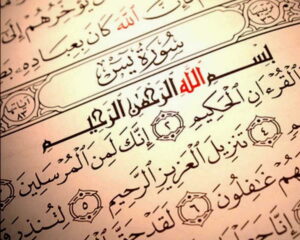 يُؤَخِّرُهُمْ
ٱللَّهَ كَانَ بِعِبَادِهِ
سُورَةُ يسٓ
آياتها ٨٣
بِسْمِ ٱللَّهِ ٱلرَّحْمَٰنِ ٱلرَّحِيمِ
ٱلْقُرْءَانِ ٱلْحَكِيمِ ٢ إِنَّكَ لَمِنَ ٱلْمُرْسَلِينَ
٤ تَنزِيلَ ٱلْعَزِيزِ ٱلرَّحِيمِ ٥ لِتُنذِرَ
غَٰفِلُونَ ٦ لَقَدْ حَقَّ
إِنَّا